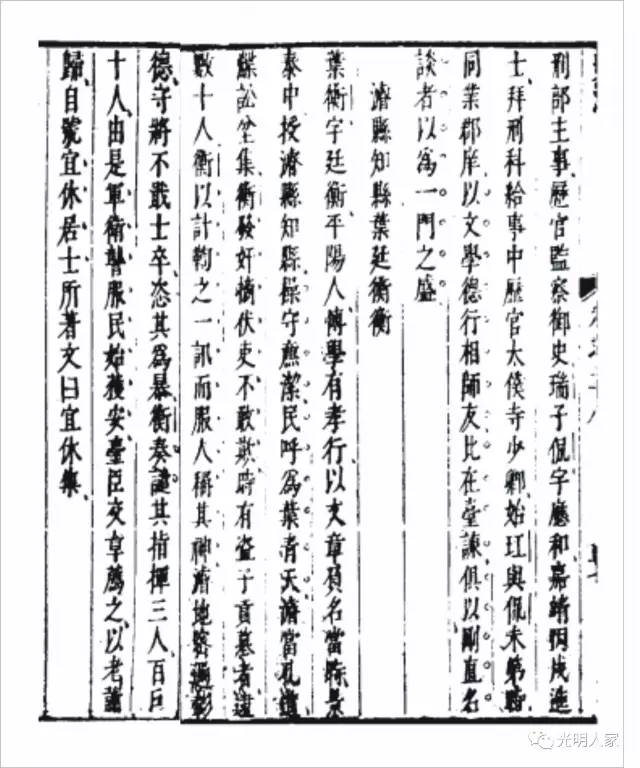 刑部主事歷官監察御史瑞子侃字廳和嘉靖丙戌進
士拜刑科給事中歷官太僕寺少卿始玒與侃未第時
同業郡庠以文學德行相師友比在臺諫俱以剛直名
談者以爲一門之盛
濬縣知縣葉廷衡衡
葉衡字廷衡平陽人博學有孝行以文章負名當時景
泰中授濬縣知縣操守亷潔民呼爲葉青天濬當孔道
牒訟坌集衡發奸擿伏吏不敢欺時有盜子貢墓者逮
數十人衡以計鞫之一訊而服人稱其神濬地密邇彰
德守將不戢士卒恣其爲暴衡奏譴其指揮三人百戶
十人由是軍衛讋服民始獲安臺臣交章薦之以老謝
歸自號宜休居士所著文曰宜休集
光明人家